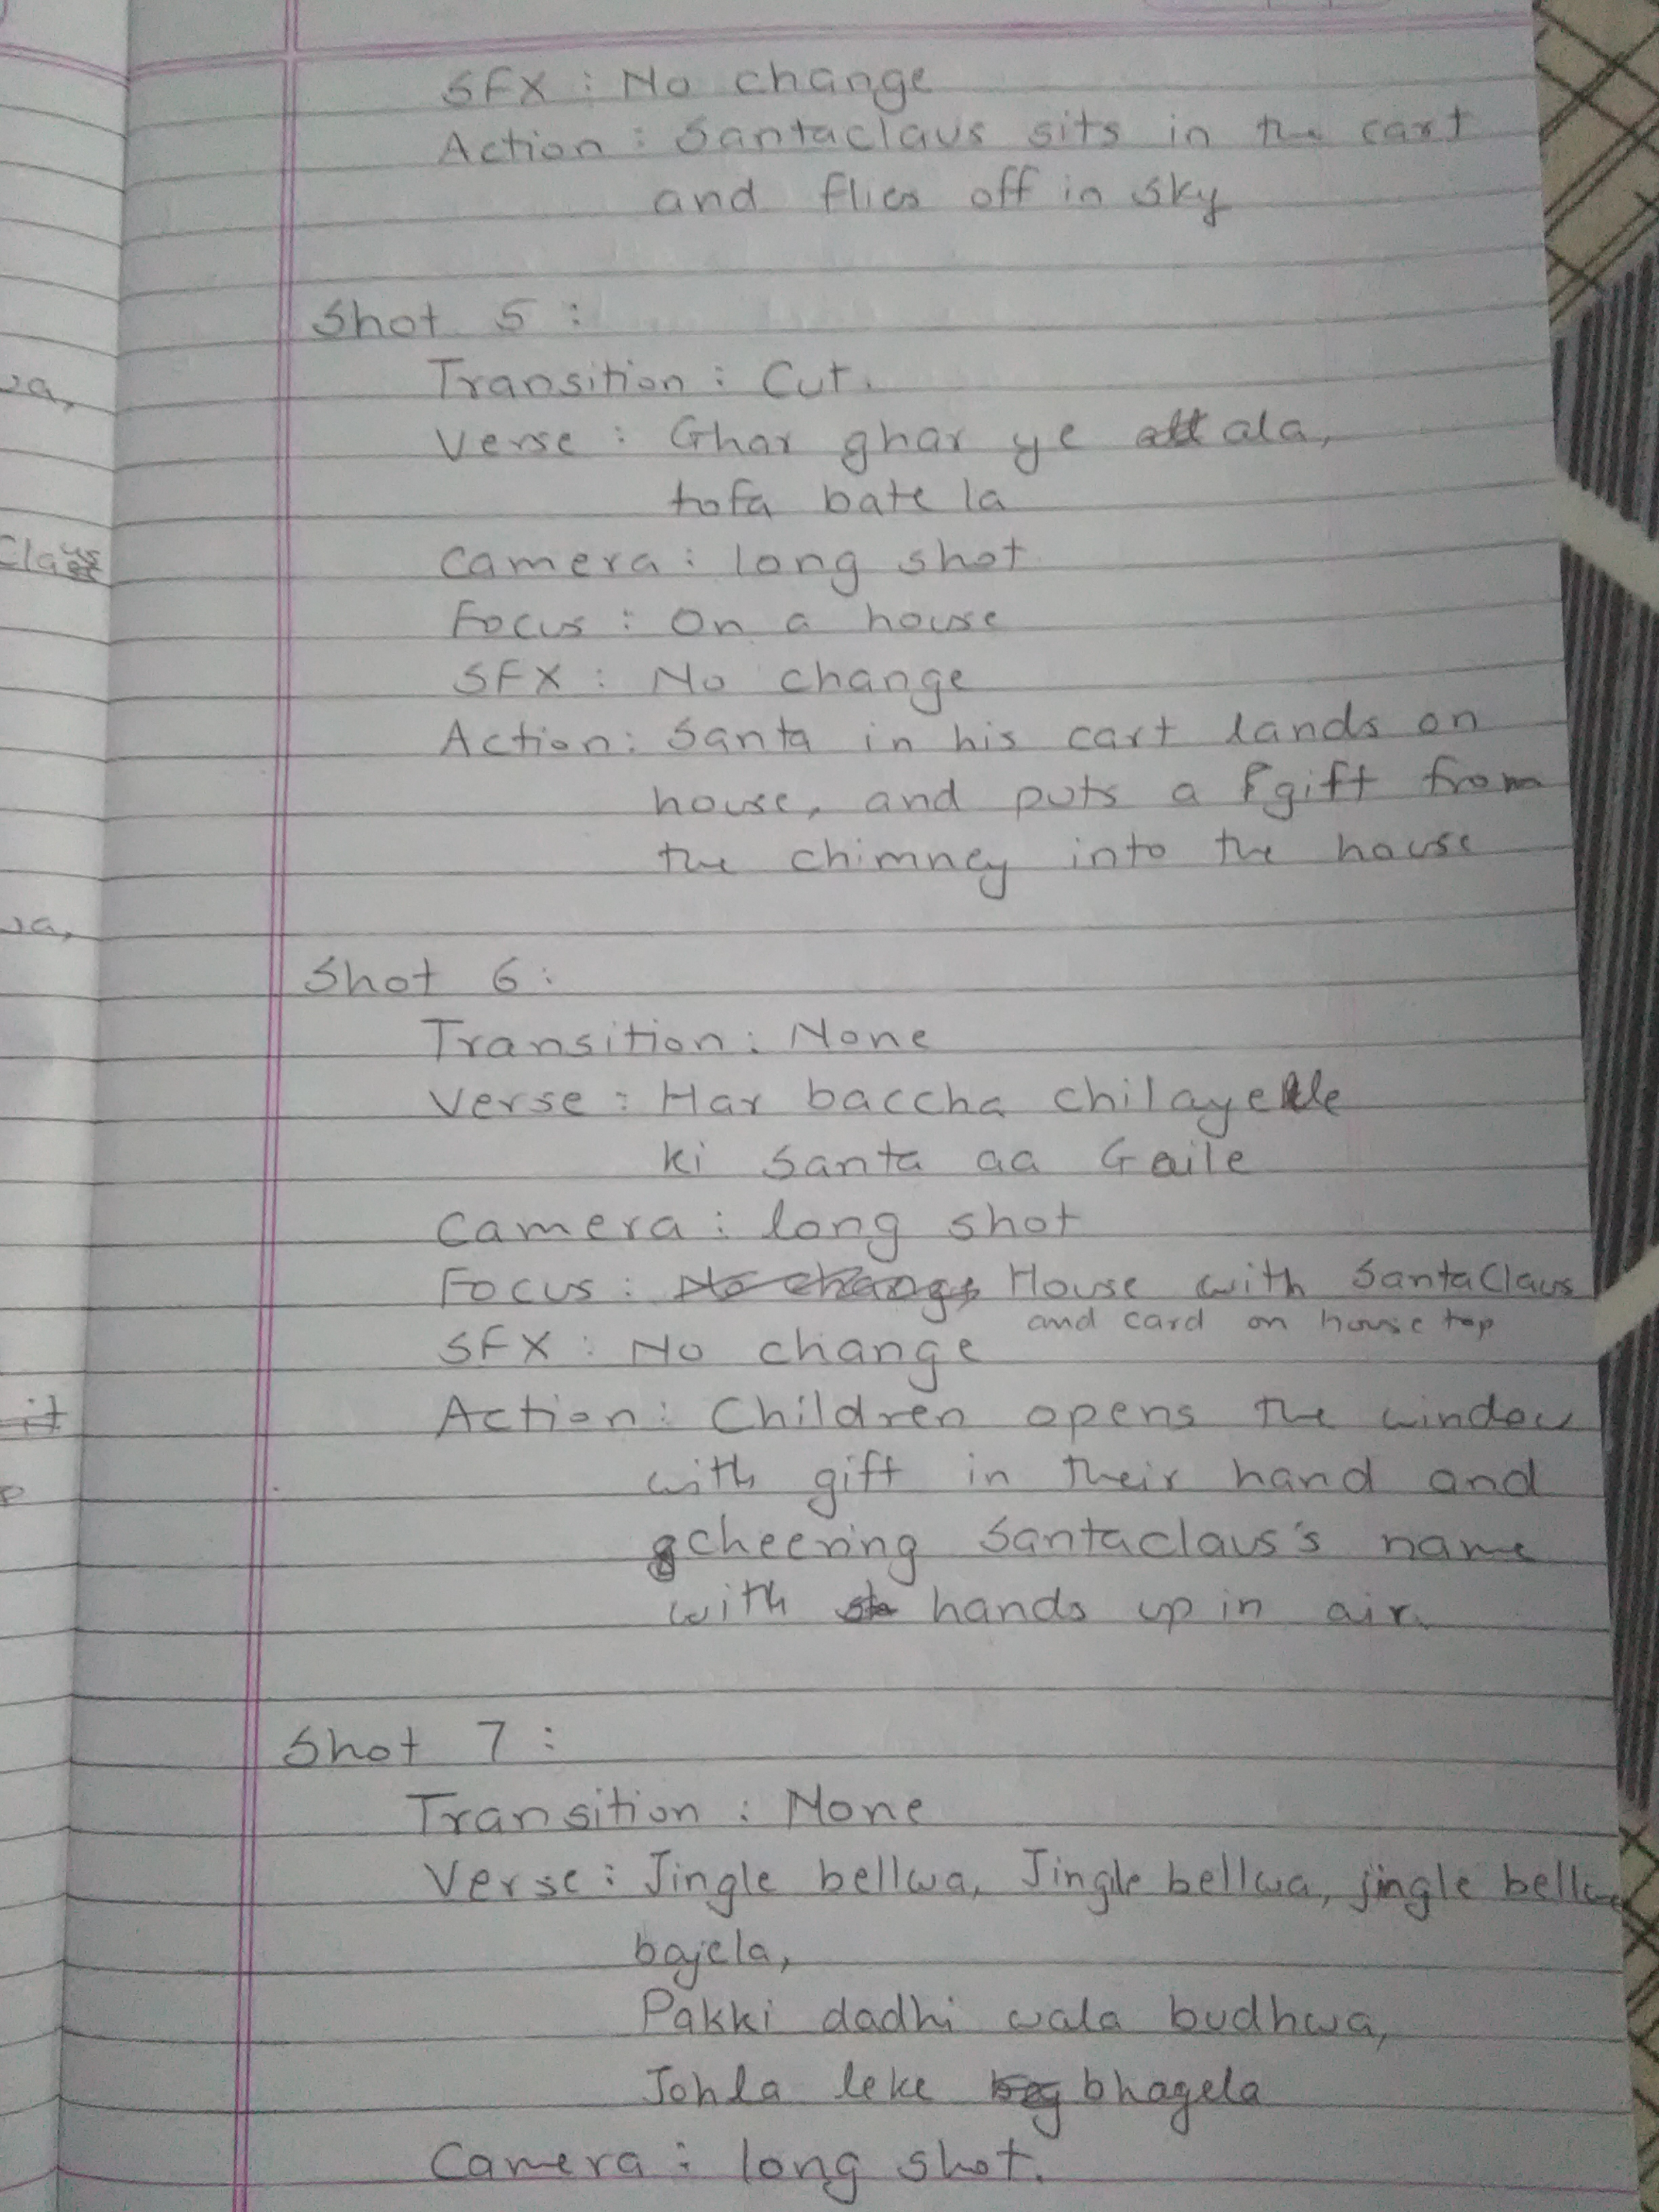 SFX : No change
Action : Santaclaus sits in the cart
and flies off in sky
Shot 5 :
Transition : Cut.
Verse : Ghar ghar ye ala,
tofa bate la
Camera : long shot
Focus : On a house
SFX : No change
Action : Santa in his cart lands on
house, and puts a gift from
the chimney into the house
Shot 6 :
Transition : None
Verse : Har baccha chilayele
ki Santa aa Gaile
Camera : long shot
Focus : No change House with SantaClaus
and card on house top
SFX : No change
Action : Children opens the window
with gift in their hand and
cheering Santaclaus's name
with hands up in air.
Shot 7 :
Transition : None
Verse : Jingle bellwa, Jingle bellwa, jingle bellwa
bajela,
Pakki dadhi wala budhwa,
Johla leke bhagela
Camera : long shot.